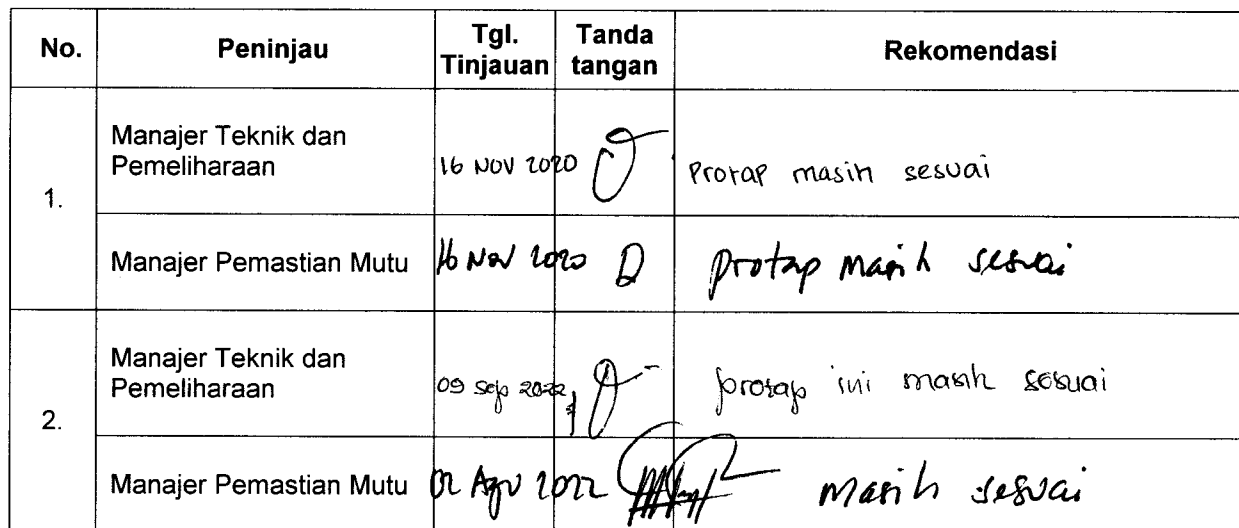 No. Peninjau Tgl. Tinjauan Tanda tangan Rekomendasi
1.
Manajer Teknik dan Pemeliharaan 16 NOV 2020 Protap masih sesuai
Manajer Pemastian Mutu 16 Nov 2020 protap masih sesuai
2.
Manajer Teknik dan Pemeliharaan 09 Sep 2022 protap ini masih sesuai
Manajer Pemastian Mutu 02 Agu 2022 masih sesuai